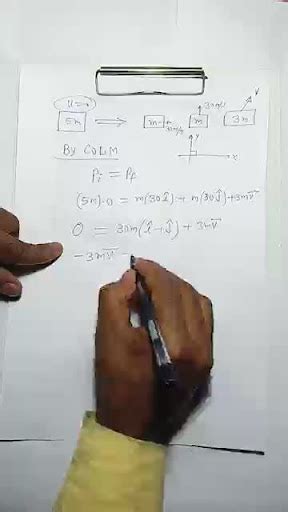 u=0
5m ⟹ m → 30m/s m 30m/s 3m V
y
x
By COLM
Pi = Pf
(5m)·0 = m(30î) + m(30ĵ) + 3mv⃗
0 = 30m(î+ĵ) + 3mv⃗
-3mv⃗